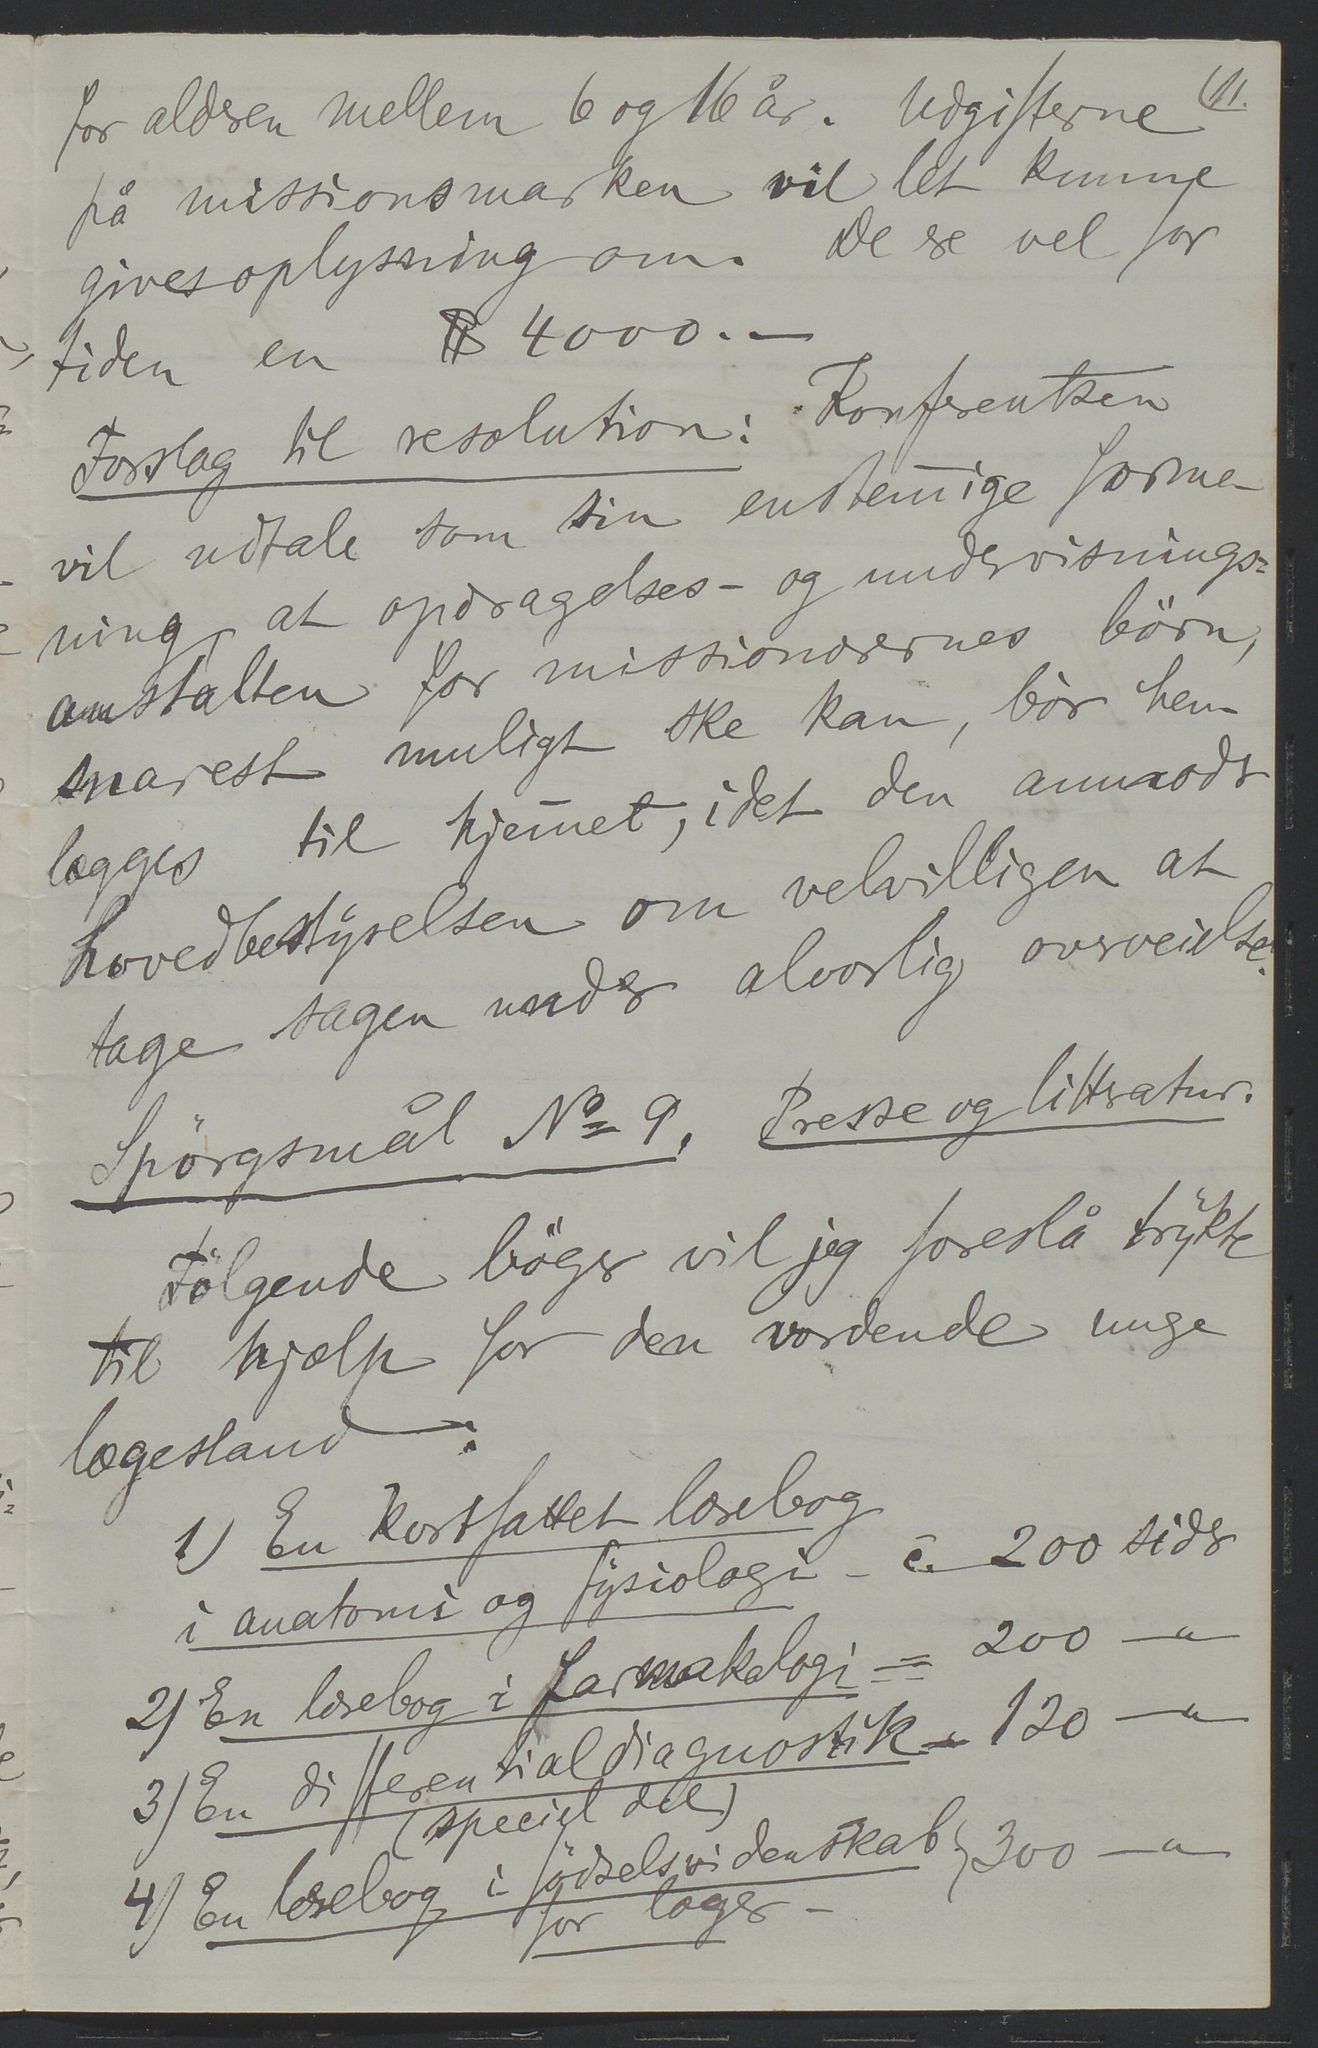 11.
for alderen mellem 6 og 16 år. Udgifterne
på missionsmarken vil let kunne
gives oplysning om. De ere vel for
tiden en $ 4000.—
Forslag til resolution: Konferentsen
vil udtale som sin enstem̄ige forme-
ning, at opdragelses- og undervisnings=
anstalten for missionærernes börn,
snarest muligt ske kan, bör hen-
lægges til hjem̄et, idet den anmoder
hovedbestÿrelsen om velvilligen at
tage sagen under alvorlig overveielse.
Spörgsmål No 9. Presse og litteratur.
Fölgende böger vil jeg foreslå trÿkte
til hjælp for den vordende unge
lægestand:
1) En kortfattet lærebog
i anatomi og fÿsiologi - c. 200 sider
2) En lærebog i farmakologi = 200 — "
3) En differentialdiagnostik - 120 — "
(speciel del)
4) En lærebog i födselsvidenskab } 300 — "
for læger -